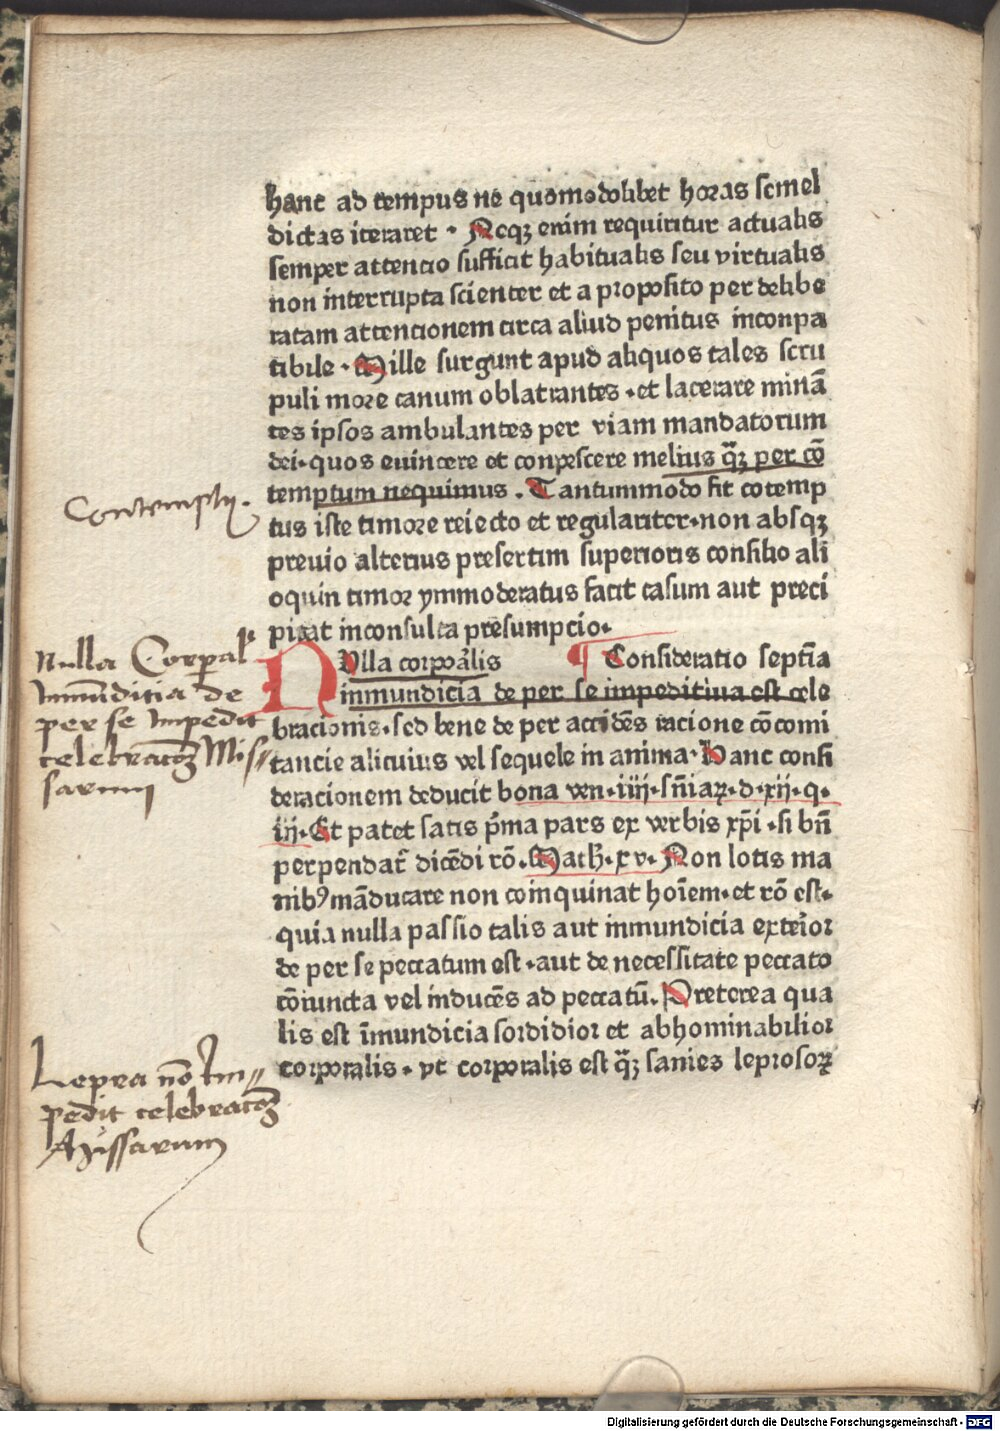 hanc ad tempus ne quomodolibet horas semel
dictas iteraret · Neqꝫ enim requiritur actualis
semper attencio sufficit habitualis seu virtualis
non interrupta scienter et a proposito per delibe
ratam attentionem circa aliud penitus inconpa
tibile · Mille surgunt apud aliquos tales scru
puli more canum oblatrantes · et lacerare minā
tes ipsos ambulantes per viam mandatorum
dei · quos euincere et conpescere melius q̄ꝫ per cō
temptum nequimus . Tantummodo fit cotemp
tus iste timore reiecto et regulariter · non absqꝫ
preuio alterius presertim superioris consilio ali
oquin timor ymmoderatus facit casum aut preci
pitat inconsulta presumpcio ·
NVlla corporālis ¶ Consideratio septīa
inmundicia de per se impeditiua est cele
bracionis · sed bene de per accidēs racione cōcomi
tancie alicuius vel sequele in anima · Hanc consi
deracionem deducit bona ven · iiii · sn̄iaꝝ · d · xii · q ·
iii · Et patet satis p̄ma pars ex verbis xp̄i · si bn̄
perpendat̄ dicēdi rō · Math · xv · Non lotis ma
nibꝰ māducare non coinquinat hoīem · et rō est ·
quia nulla passio talis aut inmundicia exterior
de per se peccatum est · aut de necessitate peccato
cōiuncta vel inducēs ad peccatū . Preterea qua
lis est īmundicia sordidior et abhominabilior
corporalis · vt corporalis est q̄ꝫ sanies leprosoꝝ
Contemptꝰ.
Nulla Corporal
Inmūditia de
per se Impedit
celebratōeꝫ Mis⸗
sarum
Lepra nō Im⸗
pedit celebratōeꝫ
Missarum
Digitalisierung gefördert durch die Deutsche Forschungsgemeinschaft - DFG